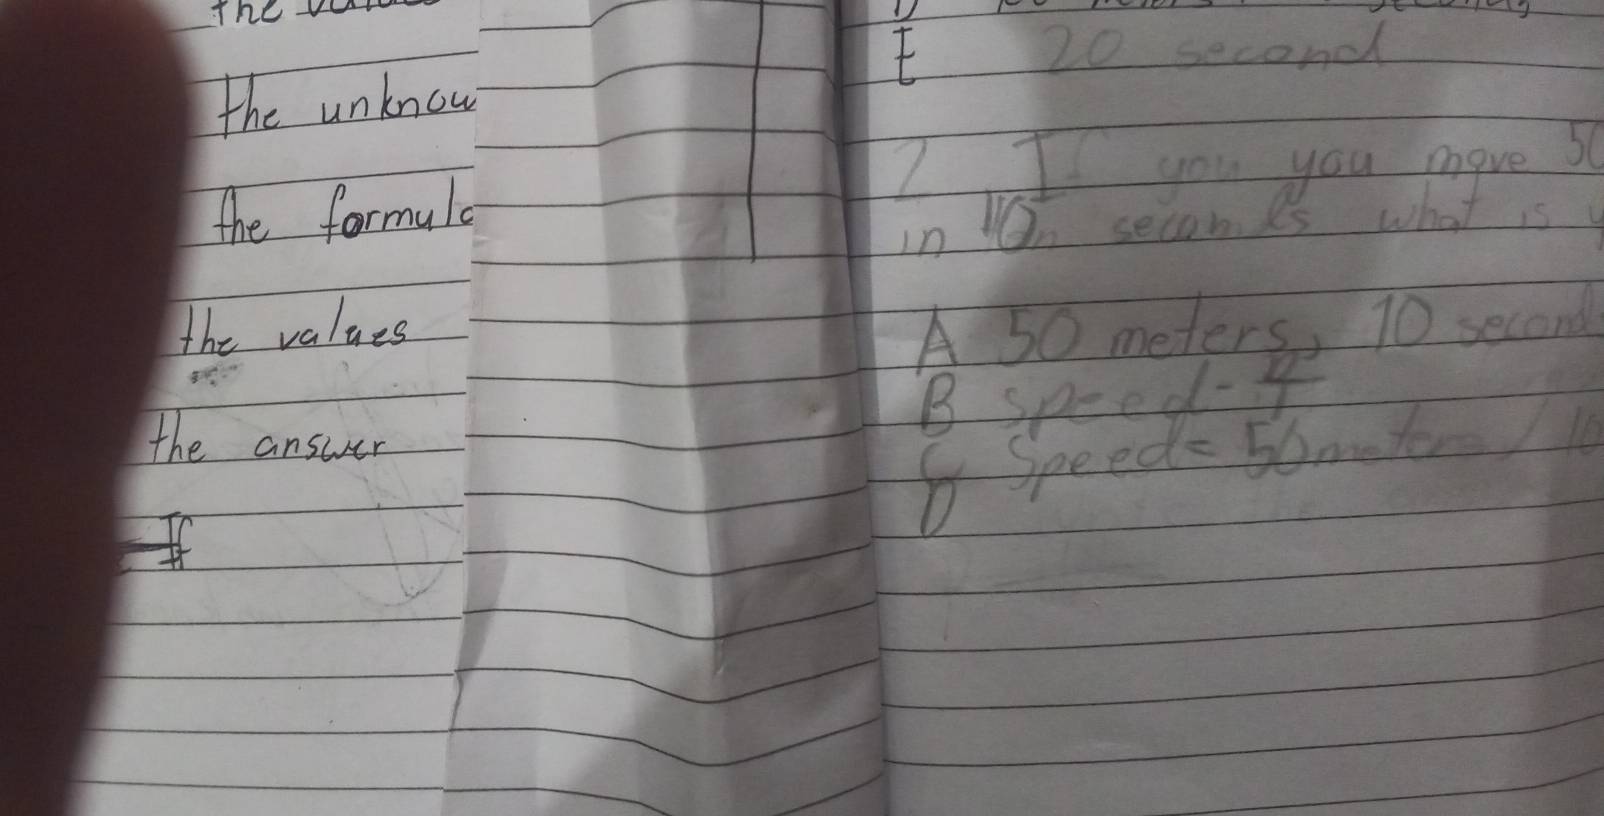 the
the unknow
the formula
the values
the answer
If
E 20 second
2 If you you move 50
in 10 seconds what is
A 50 meters, 10 second
B speed-
C Speed= 50 meters / 10
D